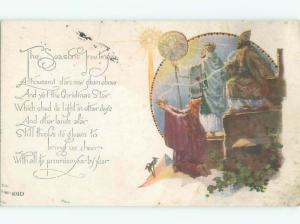 The Season's Greetings
A thousand stars now gleam above
And yet the Christmas Star
Which shed its light in other days
And other lands afar
Still throws its gleam to
bring us cheer
With all its promises year by year